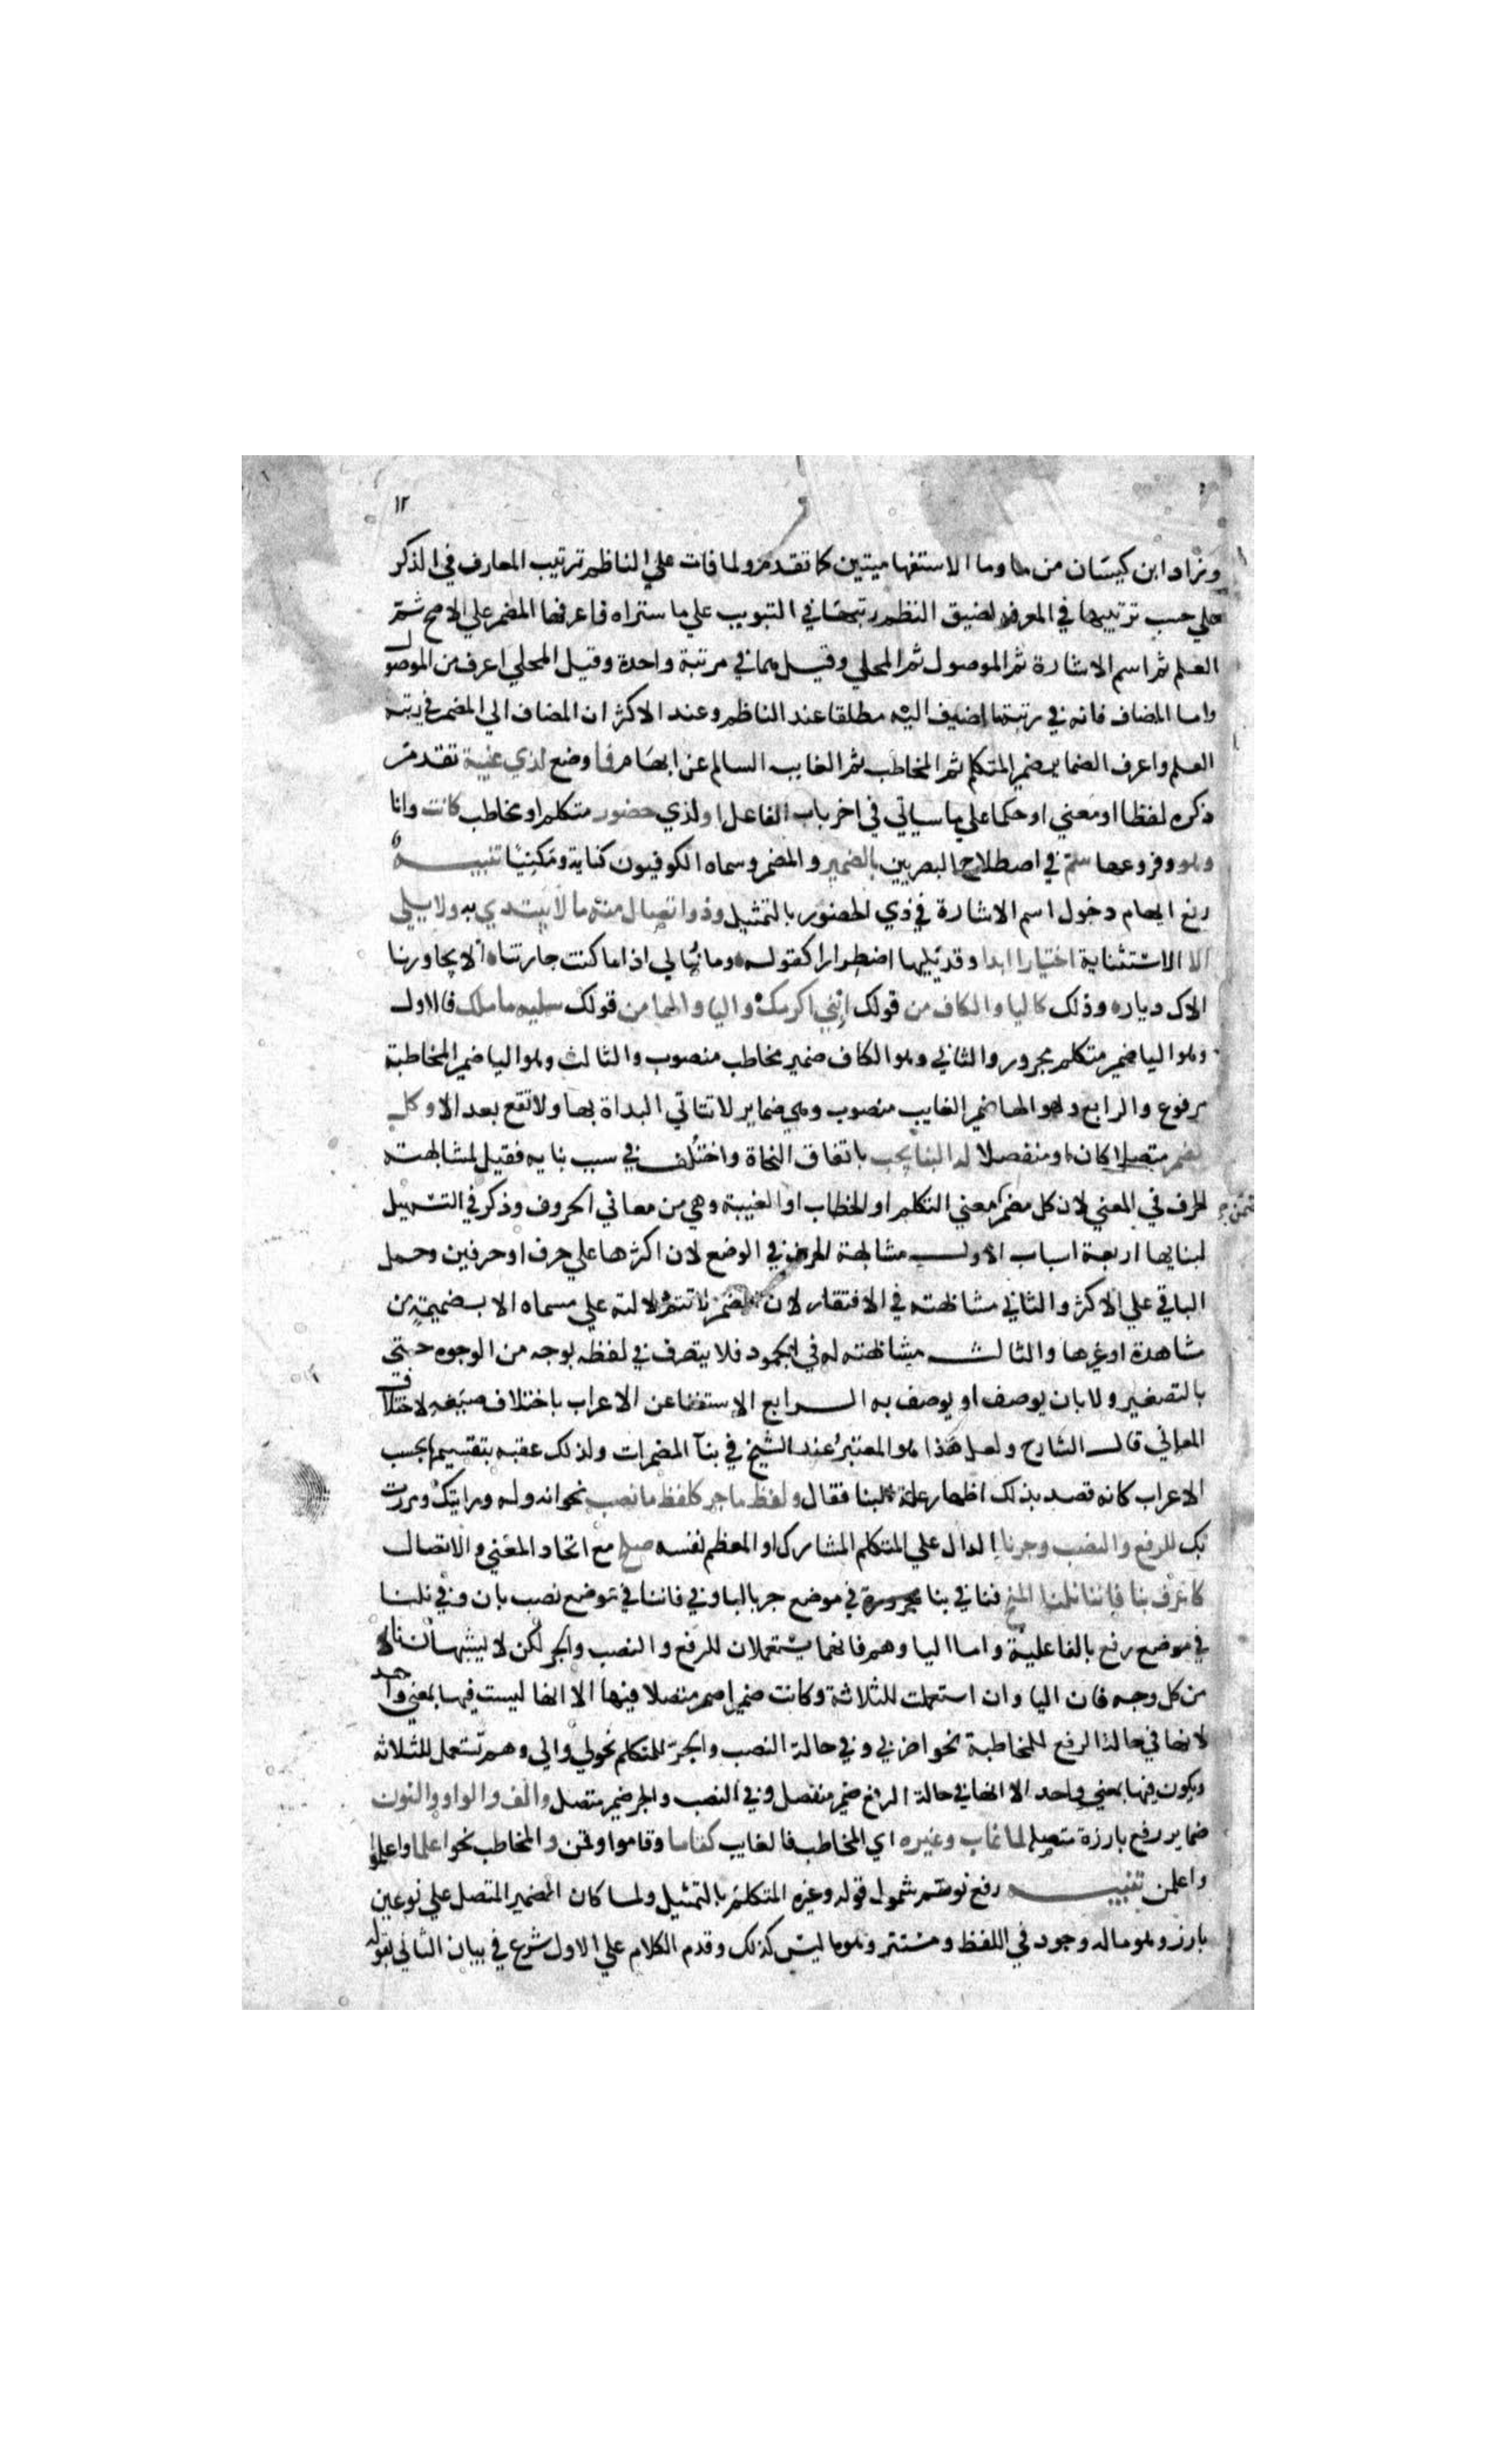 ١٢
وزاد ابن كيسان من وما الاستفهاميتين كما تقدم ولما فات علي الناظم ترتيب المعارف في الذكر
علي حسب ترتيبها في المعرفة لضيق النظم رتبها في التبويب علي ما ستراه فاعرفها المضمر علي الاصح ثم
العلم ثم اسم الاشارة ثم الموصول ثم المحلي وقيل هما في مرتبة واحدة وقيل المحلي اعرف من الموصول
واما المضاف فانه في رتبة ما اضيف اليه مطلقا عند الناظم وعند الاكثر ان المضاف الي المضمر في رتبة
العلم واعرف الضماير ضمير المتكلم ثم المخاطب ثم الغايب السالم عن ابهام فما وضع لذي غيبة تقدم
ذكره لفظا او معني او حكما علي ما سياتي في اخر باب الفاعل او لذي حضور متكلم او مخاطب كانت وانا
وهو وفروعها سم في اصطلاح البصريين بالضمير والمضمر وسماه الكوفيون كناية ومكنيا تنبيه
رفع ايهام دخول اسم الاشارة في ذي الحضور بالتمثيل وذو اتصال منه ما لا يبتدي به ولا يلي
الا الاستثنائية اختيارا ابدا وقد يليها اضطرارا كقوله وما نبالي اذا ما كنت جارتنا الا يجاورنا
الاك ديار وذلك كاليا والكاف من قولك ابني اكرمك واليا والها من قولك سليه ما ملك فالاول
وهو اليا ضمير متكلم مجرور والثاني وهو الكاف ضمير مخاطب منصوب والثالث وهو اليا ضمير المخاطبة
مرفوع والرابع وهو الها ضمير الغايب منصوب وهي ضماير لا تتاتي البداة بها ولا تقع بعد الا وكل
مضمر متصلا كان او منفصلا له البنا يجب باتفاق النحاة واختلف في سبب بنايه فقيل لمشابهته
الحرف في المعني لان كل مضمر معني التكلم او الخطاب او الغيبة وهي من معاني الحروف وذكر في التسهيل
لبنايها اربعة اسباب الاول مشابهة الحرف في الوضع لان اكثرها علي حرف او حرفين وحمل
الباقي علي الاكثر والثاني مشابهته في الافتقار لان المضمر لا تتم دلالته علي مسماه الا بضميمة من
مشاهدة او غيرها والثالث مشابهته له في الجمود فلا يتصرف في لفظه بوجه من الوجوه حتي
بالتصغير ولا بان يوصف او يوصف به الرابع الاستغنا عن الاعراب باختلاف صيغه لاختلاف
المعاني قال الشارح ولعل هذا هو المعتبر عند الشيخ في بنا المضمرات ولذلك عقبه بتقسيمها بحسب
الاعراب كانه قصد بذلك اظهار علة البنا فقال ولفظ ما جر كلفظ ما نصب نحو انه وله ورايتك ومررت
بك للرفع والنصب وجر نا الدال علي المتكلم المشارك او المعظم نفسه صلح مع اتحاد المعني والاتصال
كاعرف بنا فاننا نلنا المنح فنا في بنا مجرورة في موضع جر بالبا وفي فاننا في موضع نصب بان وفي نلنا
في موضع رفع بالفاعلية واما اليا وهم فانهما يستعملان للرفع والنصب والجر لكن لا يشبهان نا
من كل وجه فان اليا وان استعملت للثلاثة وكانت ضميرا متصلا فيها الا انها ليست فيها بمعني واحد
لانها في حالة الرفع للمخاطبة نحو اضربي وفي حالة النصب والجر للمتكلم نحو لي واني وهم تستعمل للثلاثة
ويكون فيها بمعني واحد الا انها في حالة الرفع ضمير منفصل وفي النصب والجر ضمير متصل والف والواو والنون
ضماير رفع بارزة متصلة لما غاب وغيره اي المخاطب فالغايب كقاما وقاموا وقمن والمخاطب نحو اعلما واعلموا
واعلمن تنبيه رفع توهم شمول قوله وغيره المتكلم بالتمثيل ولما كان الضمير المتصل علي نوعين
بارز وهو ماله وجود في اللفظ ومستتر وهو ما ليس كذلك وقدم الكلام علي الاول شرع في بيان الثاني بقوله